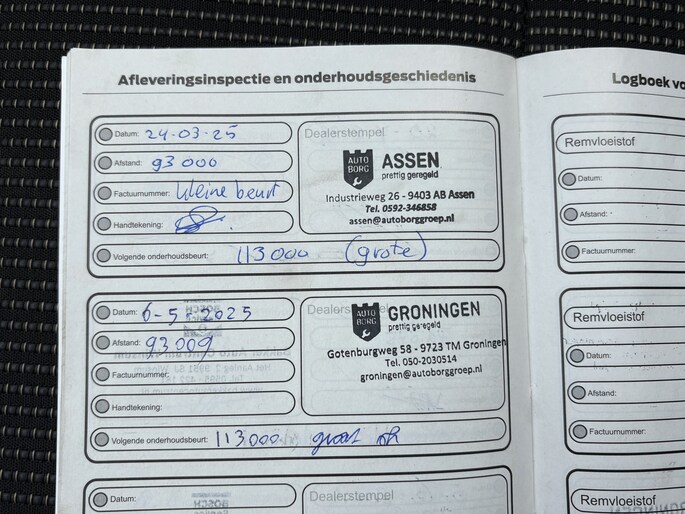 Afleveringsinspectie en onderhoudsgeschiedenis
Datum: 24-03-25
Afstand: 93 000
Factuurnummer: kleine beurt
Handtekening:
Volgende onderhoudsbeurt: 113000 (grote)
Dealerstempel
AUTO BORG
ASSEN
prettig geregeld
Industrieweg 26 - 9403 AB Assen
Tel. 0592-346858
assen@autoborggroep.nl
Datum: 6-5-2025
Afstand: 93009
Factuurnummer:
Handtekening:
Volgende onderhoudsbeurt: 113.000 groot
Dealerstempel
AUTO BORG
GRONINGEN
prettig geregeld
Gotenburgweg 58 - 9723 TM Groningen
Tel. 050-2030514
groningen@autoborggroep.nl
Datum:
Dealerstempel
Logboek
Remvloeistof
Datum:
Afstand:
Factuurnummer:
Remvloeistof
Datum:
Afstand:
Factuurnummer:
Remvloeistof